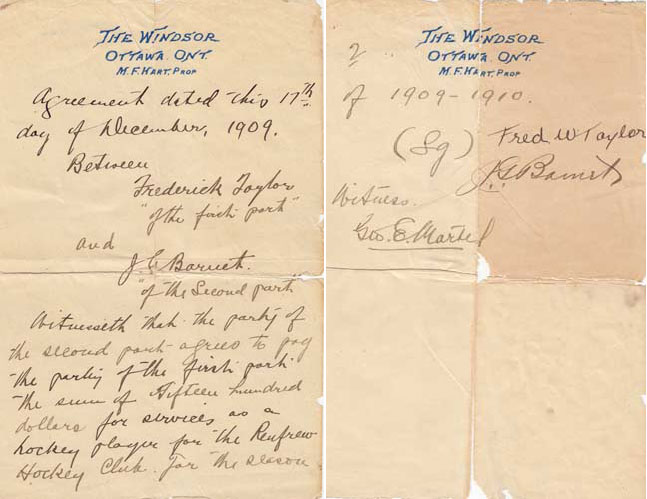 THE WINDSOR
OTTAWA. ONT.
M.F. HART. PROP
Agreement dated this 17th
day of December, 1909.
Between
Frederick Taylor
"of the first part"
and
J G Barnet.
"of the Second part"
Witnesseth that the party of
the second part agrees to pay
the party of the first part
the sum of fifteen hundred
dollars for services as a
hockey player for the Renfrew
Hockey Club. for the season
THE WINDSOR
OTTAWA. ONT.
M.F. HART. PROP
2
of 1909-1910.
(Sg) Fred W Taylor
J G Barnet
Witness.
Geo. E. Martel